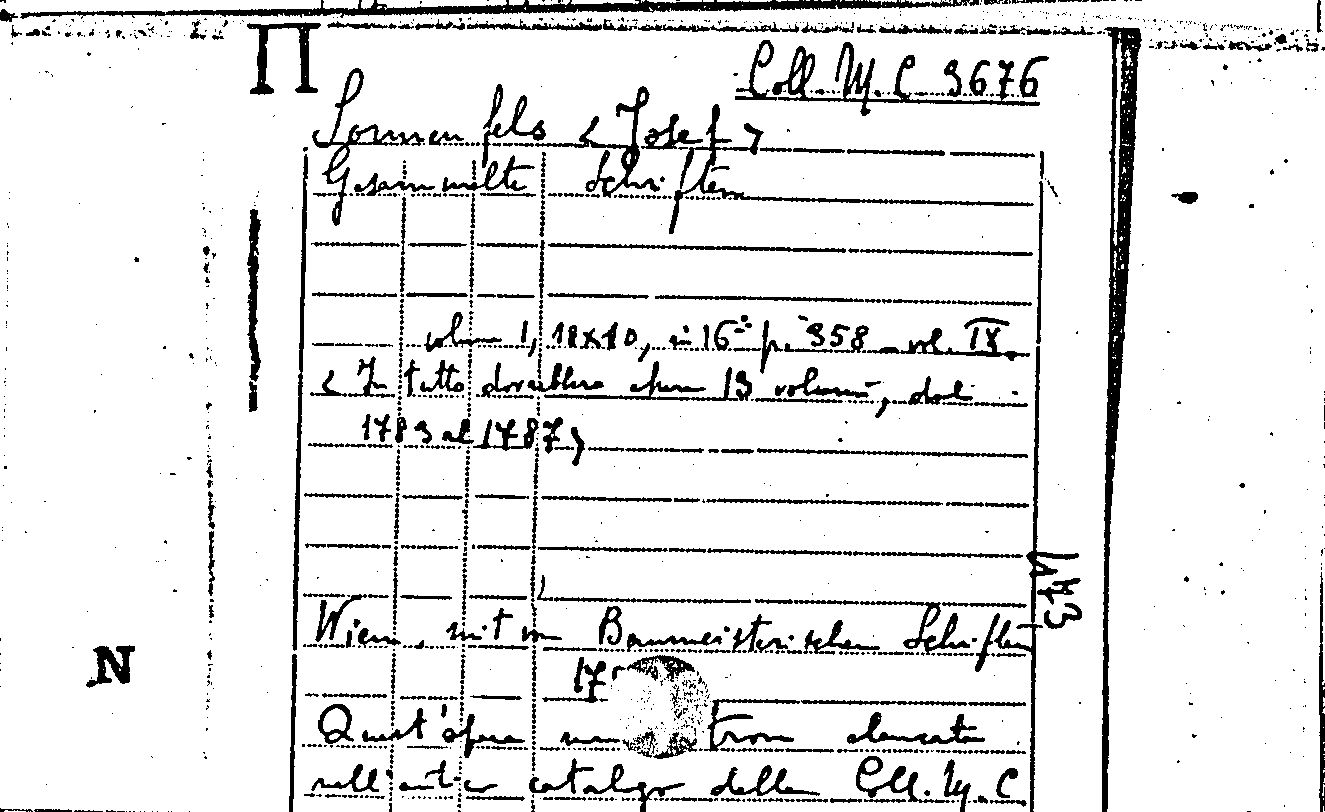 Π
Coll. M. C 3676
Sonnenfels < Josef >
Gesammelte Schriften
volume 1, 18x10, in 16° p. 358 - vol. IX.
< In tutto dovrebbero essere 13 volumi, dal
1783 al 1787 >
Wien, mit von Baumeisterischen Schriften
17
Quest'opera non trova elencata
nell'antico catalogo della Coll. M. C
N